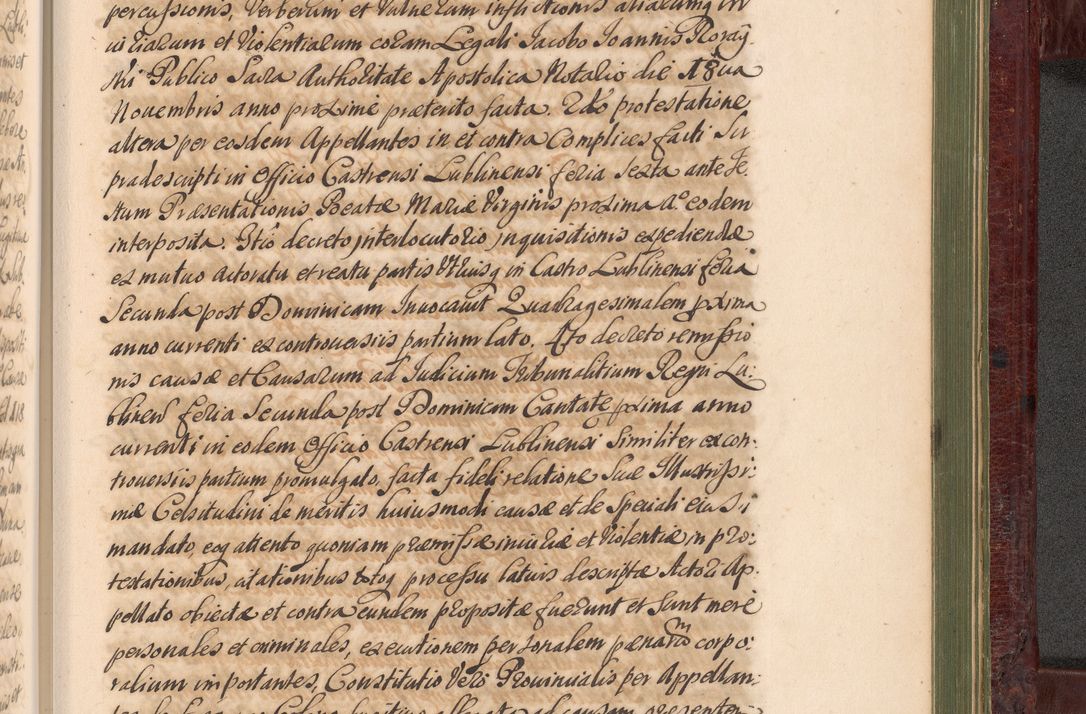 percussionis, Verberum et Vulnerum inflictionis aliarumq in
iuriarum et Violentiarum coram Legali Jacobo Joannis Roray
ski Publico Sacra Authoritate Apostolica Notario die 18va
Novembris anno proxime præterito facta. 2do protestatione
altera per eosdem Appellantes in et contra Complices facti su
pradescripti in Officio Castrensi Lublinensi feria sexta ante Fe
stum Præsentationis Beatæ Mariæ Virginis proxima A° eodem
interposita. 3tio decreto interlocutorio inquisitionis expediendæ
ex mutuo actoratu et reatu partis Utriusq in Castro Lublinensi feria
Secunda post Dominicam Invocavit Quadragesimalem pxima
anno currenti ex controversiis partium lato. 4to decreto remissio
nis causæ et Causarum ad Judicium Tribunalitium Regni Lu:
blinen feria Secunda post Dominicam Cantate pxima anno
currenti in eodem Officio Castrensi Lublinensi similiter ex con:
troversiis partium promulgato, facta fideli relatione Suæ Illustrissi:
mæ Celsitudini de meritis huiusmodi causæ et de speciali eius
mandato, eoq attento quoniam præmissæ iniuriæ et Violentiæ in pro:
testationibus, citationibus totoq processu latius descriptæ Actori Ap:
pellato obiectæ et contra eundem propositæ fuerunt et sunt mere
personales et criminales, executionem personalem pænarum corpo:
ralium importantes, Constitutio Vero Provincialis per Appellan: